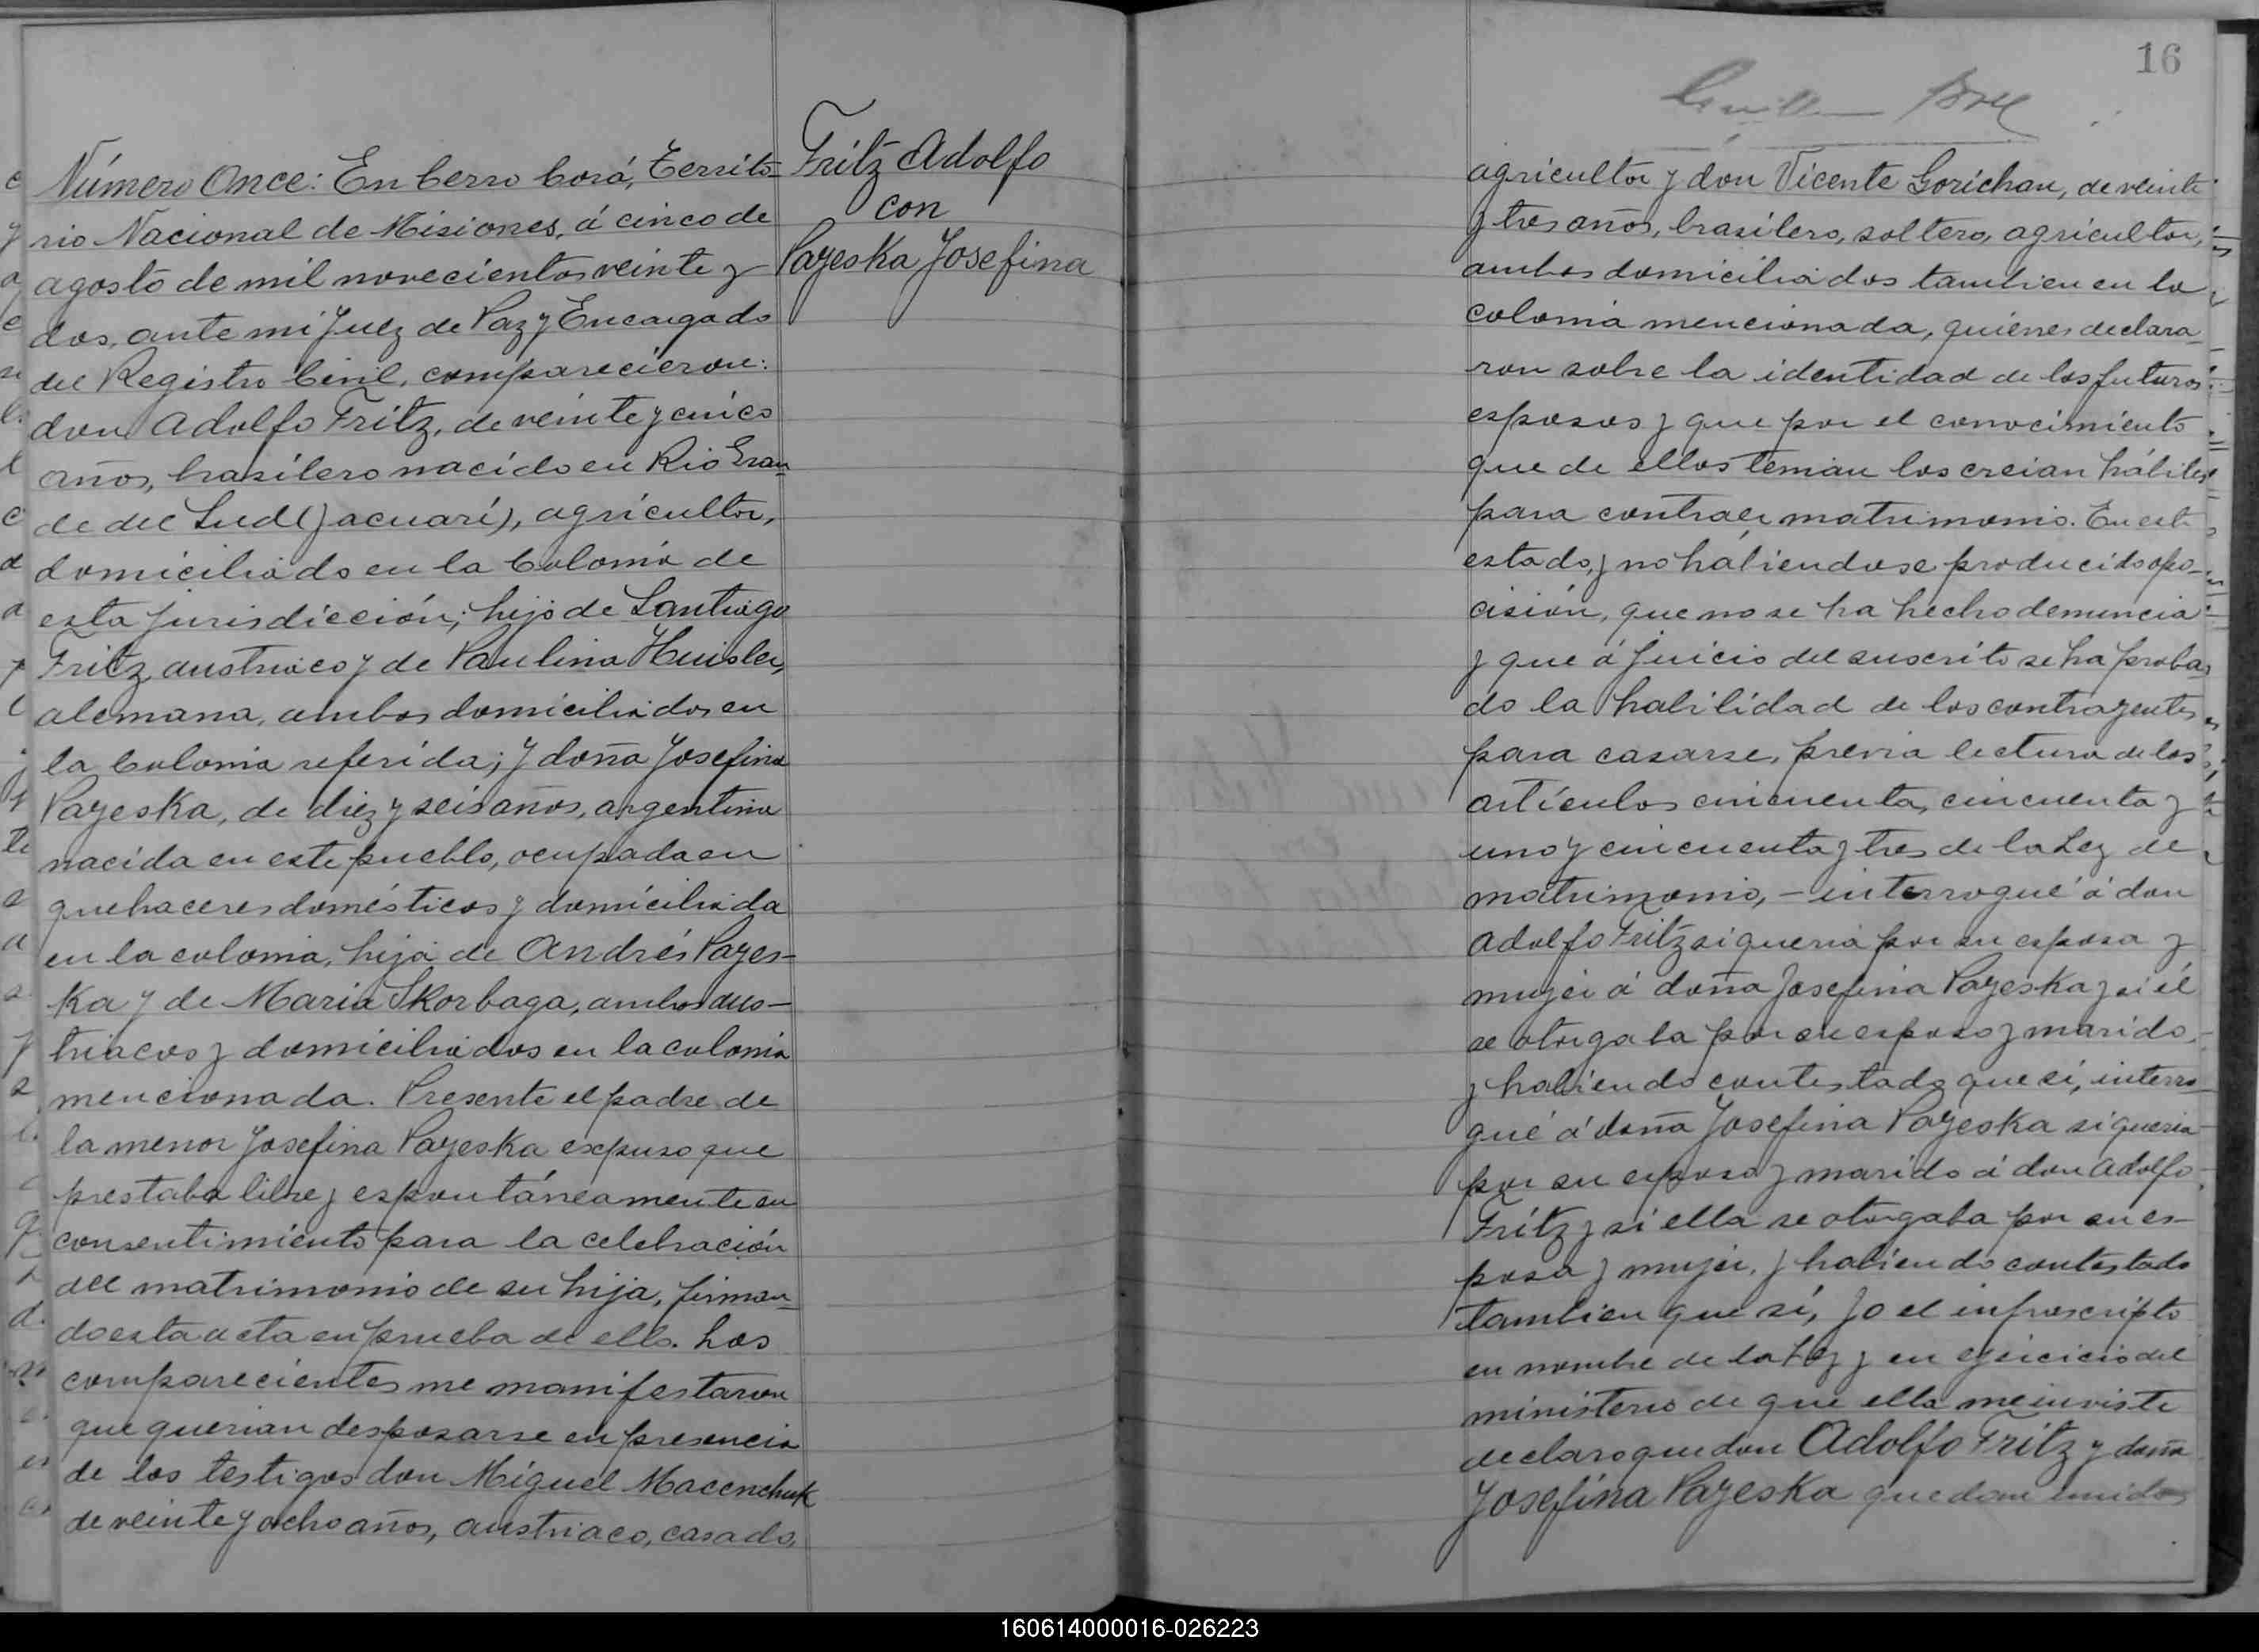 Número Once: En Cerro Corá, Territo-
rio Nacional de Misiones, á cinco de
agosto de mil novecientos veinte y
dos, ante mi Juez de Paz y Encargado
del Registro Civil, comparecieron:
don Adolfo Fritz, de veinte y cinco
años, brasilero nacido en Rio Gran-
de del Sud (Jacuari), agricultor,
domiciliado en la Colonia de
esta jurisdicción; hijo de Santiago
Fritz, austriaco y de Paulina Huisler,
alemana, ambos domiciliados en
la Colonia referida; y doña Josefina
Payeska, de diez y seis años, argentina
nacida en este pueblo, ocupada en
quehaceres domésticos y domiciliada
en la colonia, hija de Andrés Payes-
ka y de Maria Skorbaga, ambos aus-
triacos y domiciliados en la colonia
mencionada. Presente el padre de
la menor Josefina Payeska expuso que
prestaba libre y espontáneamente su
consentimiento para la celebración
del matrimonio de su hija, firman-
do esta acta en prueba de ello. Los
comparecientes me manifestaron
que querian desposarse en presencia
de los testigos don Miguel Macenchuk
de veinte y ocho años, austriaco, casado,
Fritz Adolfo
con
Payeska Josefina
16
agricultor y don Vicente Gorichan, de veinte
y tres años, brasilero, soltero, agricultor,
ambos domiciliados tambien en la
colonia mencionada, quienes declara-
ron sobre la identidad de los futuros
esposos y que por el conocimiento
que de ellos tenian los creian hábiles
para contraer matrimonio. En este
estado, y no habiendose producido opo-
cisión, que no se ha hecho denuncia
y que á juicio del suscrito se ha proba-
do la habilidad de los contrayentes
para casarse, previa lectura de los
artículos cincuenta, cincuenta y
uno y cincuenta y tres de la Ley de
matrimonio, - interrogué á don
Adolfo Fritz si queria por su esposa y
mujer á doña Josefina Payeska y si él
se otorgaba por su esposo y marido,
y habiendo contestado que sí, interro-
gué á doña Josefina Payeska si queria
por su esposo y marido á don Adolfo
Fritz y si ella se otorgaba por su es-
posa y mujer, y habiendo contestado
tambien que sí, yo el infrascripto
en nombre de la Ley y en ejercicio del
ministerio de que ella me inviste
declaro que don Adolfo Fritz y doña
Josefina Payeska quedan unidos
160614000016-026223